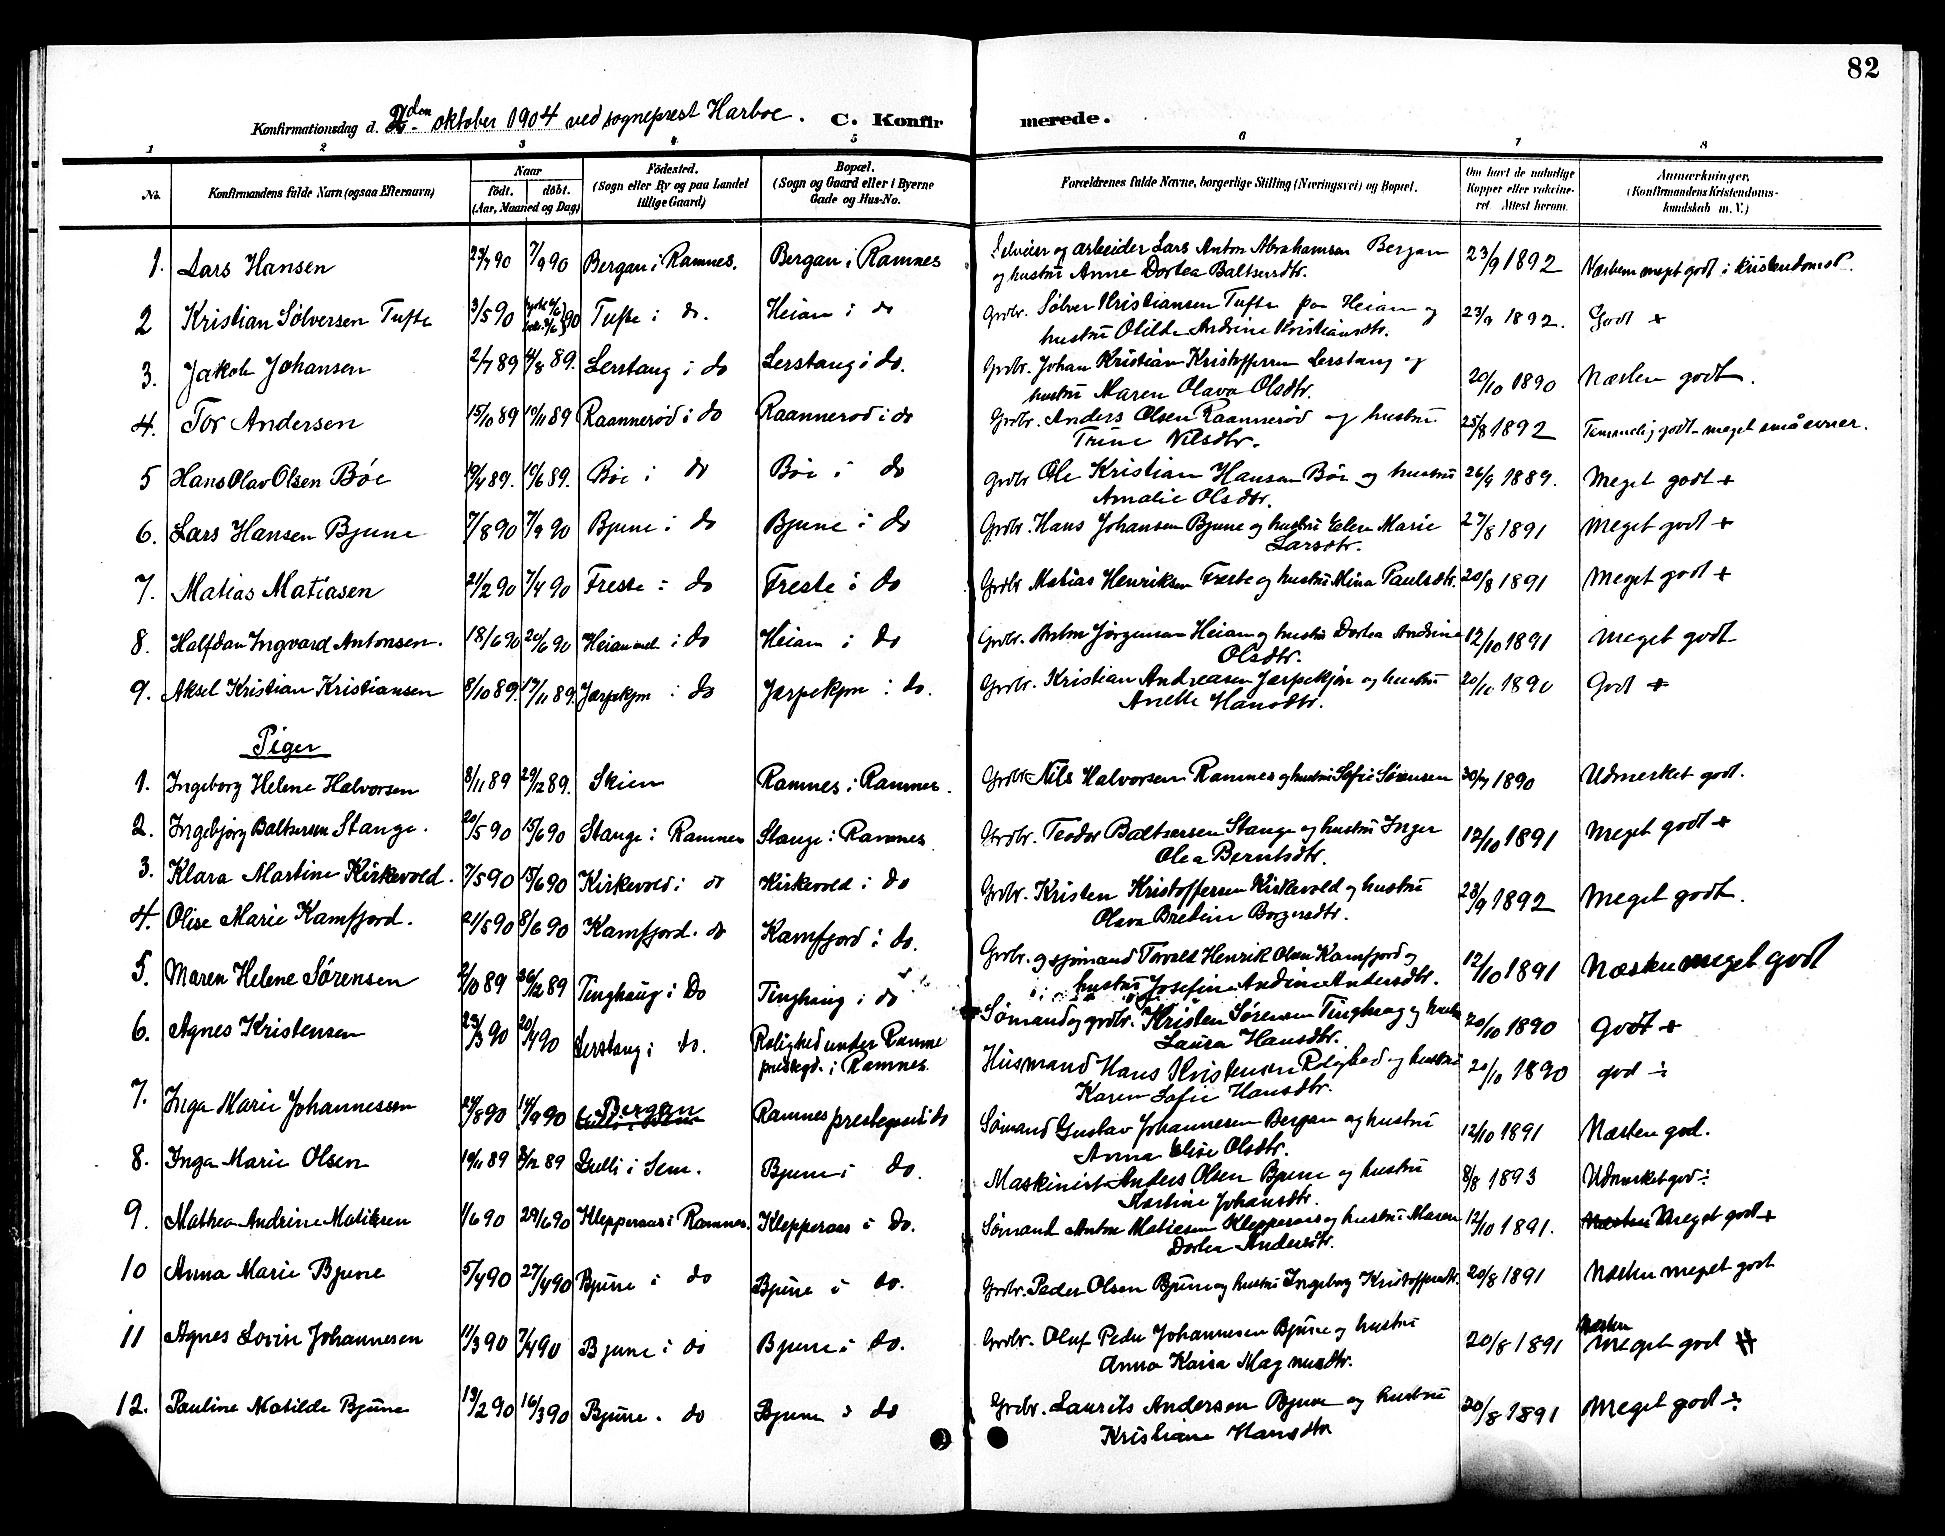 82
Konfirmationsdag d. 2den oktober 1904 ved sogneprest Harboe. C. Konfirmerede.
1 2 3 4 5 6 7 8
No. Konfirmandens fulde Navn (ogsaa Efternavn) Naar født. døbt. (Aar, Maaned og Dag) Födested. (Sogn eller By og paa Landet tillige Gaard) Bopæl. (Sogn og Gaard eller i Byerne Gade og Hus-No. Forældrenes fulde Navne, borgerlige Stilling (Næringsvei) og Bopæl. Om havt de naturlige Kopper eller vaksineret. Attest herom. Anmærkninger, (Konfirmandens Kristendomskundskab m. V.)
1. Lars Hansen 23/7 90 7/9 90 Bergan i Ramnes. Bergan i Ramnes Selveier og arbeider Lars Anton Abrahamsen Bergan 23/9 1892 Næsten meget godt i kristendomsk.
og hustru Anne Dortea Baltsersdtr.
2 Kristian Sølversen Tufte 3/5 90 90 Tufte i do. Heian i do Grdbr. Sølver Kristiansen Tufte paa Heian og 23/9 1892. Godt +
hustru Otilde Andrine Kristiansdtr.
3. Jakob Johansen 2/7 89 4/8 89. Lerstang i do Lerstang i do. Grdbr. Johan Kristian Kristoffersen Lerstang og 20/10 1890 Næsten godt.
hustru Maren Olava Olsdtr.
4. Tor Andersen 15/10 89 10/11 89 Raannerød i do Raannerød i do Grdbr. Anders Olsen Raannerød og hustru 25/8 1892 Temmelig godt - meget små evner.
Trine Nilsdtr.
5 Hans Olav Olsen Bøe 19/4 89. 10/6 89. Bøe i do Bøe i do Grdbr Ole Kristian Hansen Bøe og hustru 26/9 1889. Meget godt +
Amalie Olsdtr.
6. Lars Hansen Bjune 7/8 90 7/9 90 Bjune i do Bjune i do Grdbr. Hans Johansen Bjune og hustru Elen Marie 27/8 1891 Meget godt +
Larsdtr.
7. Matias Matiasen 21/2 90 7/4 90 Freste i do Freste i do Grdbr Matias Henriksen Freste og hustru Mina Paulsdtr. 20/8 1891 Meget godt +
8. Halfdan Ingvard Antonsen. 18/6 90 20/6 90 Heian i do Heian i do Grdbr. Anton Jørgensen Heian og hustru Dortea Andrine 12/10 1891 Meget godt
Olsdtr.
9. Aksel Kristian Kristiansen 8/10 89. 17/11 89. Jærpekjøn i do Jærpekjøn i do. Grdbr. Kristian Andreasen Jærpekjøn og hustru 20/10 1890 Godt +
Anette Hansdtr.
Piger
1. Ingeborg Helene Halvorsen 8/11 89 29/12 89. Skien Ramnes i Ramnes. Grdbr Nils Halvorsen Ramnes og hustru Sofie Sørensen 30/7 1890 Udmerket godt.
2. Ingebjørg Baltsersen Stange. 20/5 90 15/6 90 Stange i Ramnes Stange i Ramnes Grdbr. Teodor Baltsersen Stange og hustru Inger 12/10 1891 Meget godt +
Olea Berntsdtr.
3. Klara Martine Kirkevold. 7/5 90 15/6 90 Kirkevold i do Kirkevold i do Grdbr. Kristen Kristoffersen Kirkevold og hustru 23/9 1892 Meget godt.
Olava Bredine Borgersdtr.
4. Olise Marie Kamfjord. 21/5 90 8/6 90 Kamfjord. do Kamfjord i do. Grdbr. og sjømand Torvald Henrik Olsen Kamfjord og 12/10 1891 Næsten meget godt
hustru Josefine Andine Andersdtr.
5. Maren Helene Sørensen 2/10 89 26/12 89 Tinghaug i Do Tinghaug i do Sømand og grdbr. Kristen Sørensen Tinghaug og hustru 20/10 1890 Godt +
Laura Hansdtr.
6. Agnes Kristensen 23/3 90 20/4 90 Lerstang i do. Rolighed under Ramne prestegd. i Ramnes. Husmand Hans Kristensen Rolighed og hustru 20/10 1890 god ÷
Karen Sofie Hansdtr.
7. Inga Marie Johannessen 24/8 90 14/9 90 Bergan Ramnes prestegaard i do Sømand Gustav Johannesen Bergan og hustru 12/10 1891 Næsten god.
Anna Elise Olsdtr.
8. Inga Marie Olsen 19/11 89 8/12 89 Gulli i Sem. Bjune i do. Maskinist Anders Olsen Bjune og hustru 8/8 1893 Udmerket god ÷
Martine Johansdtr.
9. Mathea Andrine Matisen 1/6 90 29/6 90 Kleppersaas i Ramnes. Kleppersaas i do. Sømand Anton Matiesen Kleppersaas og hustru Maren 12/10 1891. Næsten Meget godt +
Dortea Andersdtr.
10 Anna Marie Bjune 5/4 90 27/4 90 Bjune i do Bjune i do. Grdbr. Peder Olsen Bjune og hustru Ingeborg Kristoffersdtr. 20/8 1891 Næsten meget godt
11 Agnes Lovise Johannesen 11/3 90 7/4 90 Bjune i do Bjune i do. Grdbr. Oluf Peder Johannesen Bjune og hustru 20/8 1891 Næsten Meget god
Anna Kaisa Magnusdtr.
12. Pauline Matilde Bjune 13/2 90 16/3 90 Bjune. do Bjune i do Grdbr. Laurits Andersen Bjune og hustru 20/8 1891 Meget god ÷
Kristiane Hansdtr